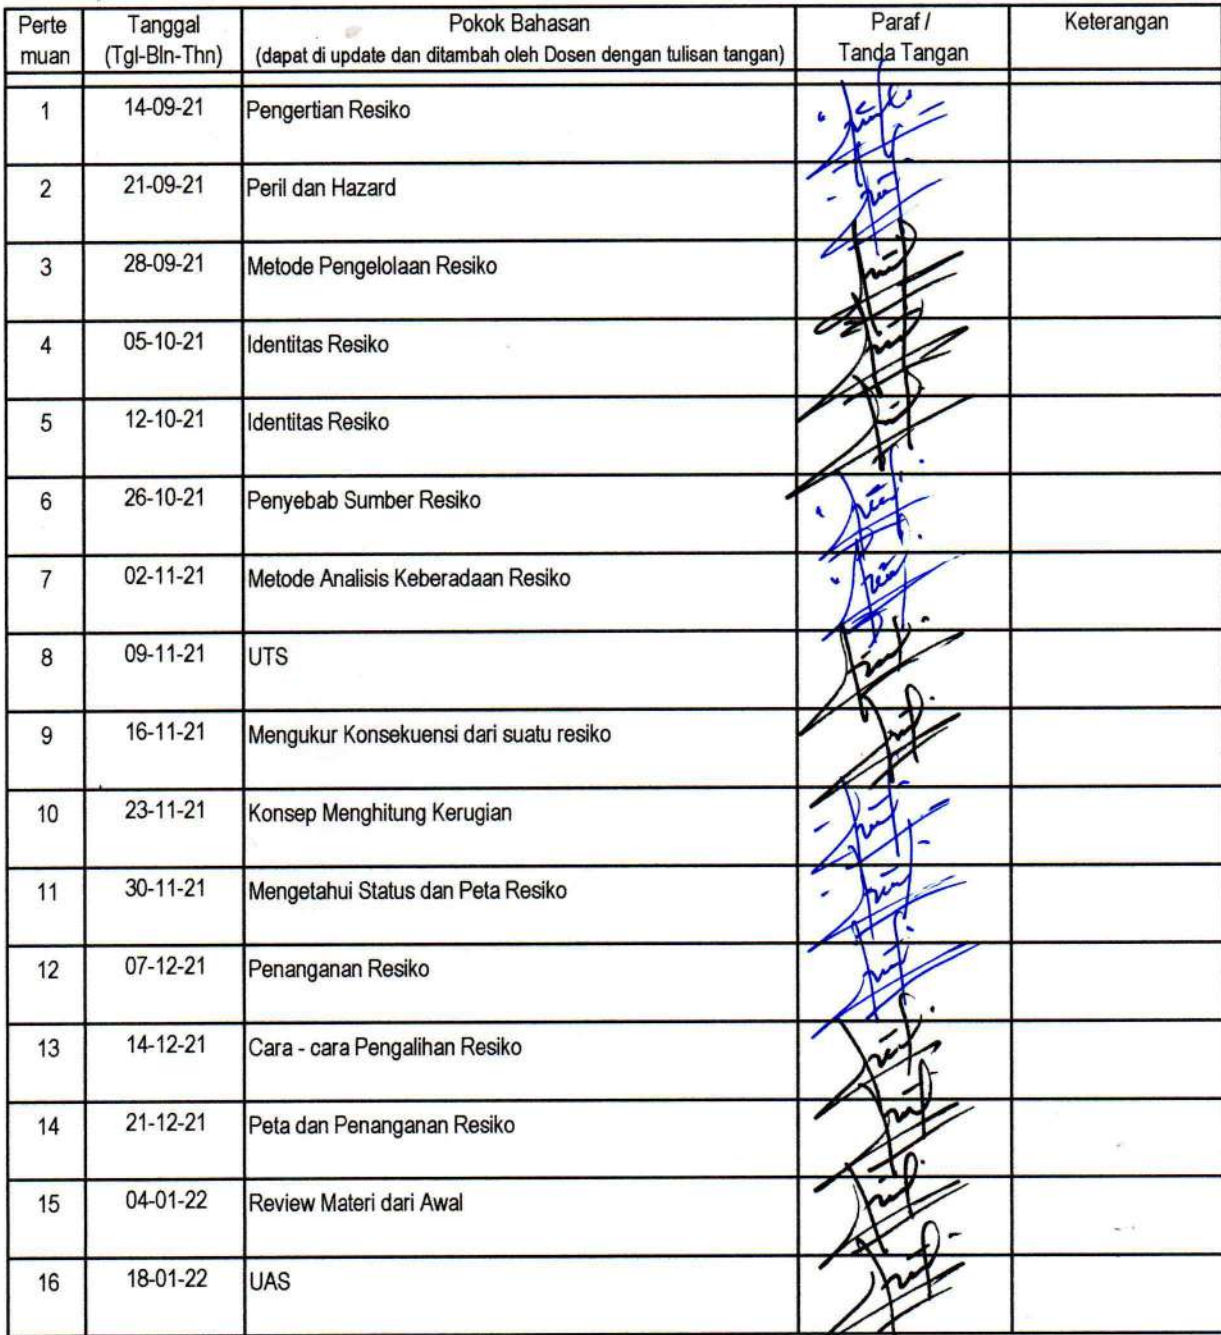 Perte Tanggal Pokok Bahasan Paraf / Keterangan
muan (Tgl-Bln-Thn) (dapat di update dan ditambah oleh Dosen dengan tulisan tangan) Tanda Tangan
1 14-09-21 Pengertian Resiko
2 21-09-21 Peril dan Hazard
3 28-09-21 Metode Pengelolaan Resiko
4 05-10-21 Identitas Resiko
5 12-10-21 Identitas Resiko
6 26-10-21 Penyebab Sumber Resiko
7 02-11-21 Metode Analisis Keberadaan Resiko
8 09-11-21 UTS
9 16-11-21 Mengukur Konsekuensi dari suatu resiko
10 23-11-21 Konsep Menghitung Kerugian
11 30-11-21 Mengetahui Status dan Peta Resiko
12 07-12-21 Penanganan Resiko
13 14-12-21 Cara - cara Pengalihan Resiko
14 21-12-21 Peta dan Penanganan Resiko
15 04-01-22 Review Materi dari Awal
16 18-01-22 UAS